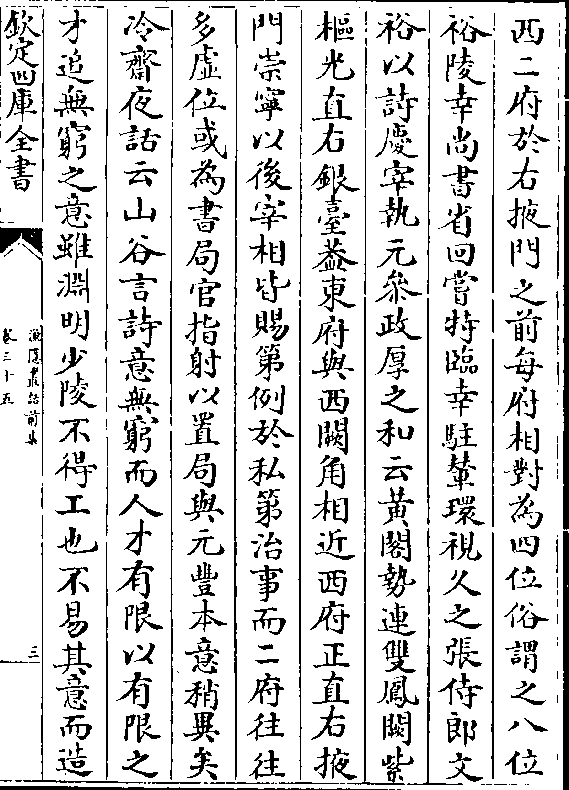 西二府於右掖門之前每府相對為四位俗謂之八位
裕陵幸尚書省回嘗特臨幸駐輦環視久之張侍郎文
裕以詩慶宰執元參政厚之和云黃閣勢連雙鳳闕紫
樞光直右銀臺葢東府與西闕角相近西府正直右掖
門崇寧以後宰相皆賜第例於私第治事而二府往往
多虛位或為書局官指射以置局與元豐本意稍異矣
冷齋夜話云山谷言詩意無窮而人才有限以有限之
才追無窮之意雖淵明少陵不得工也不易其意而造
欽定四庫全書
漁隱叢話前集
卷三十五
三